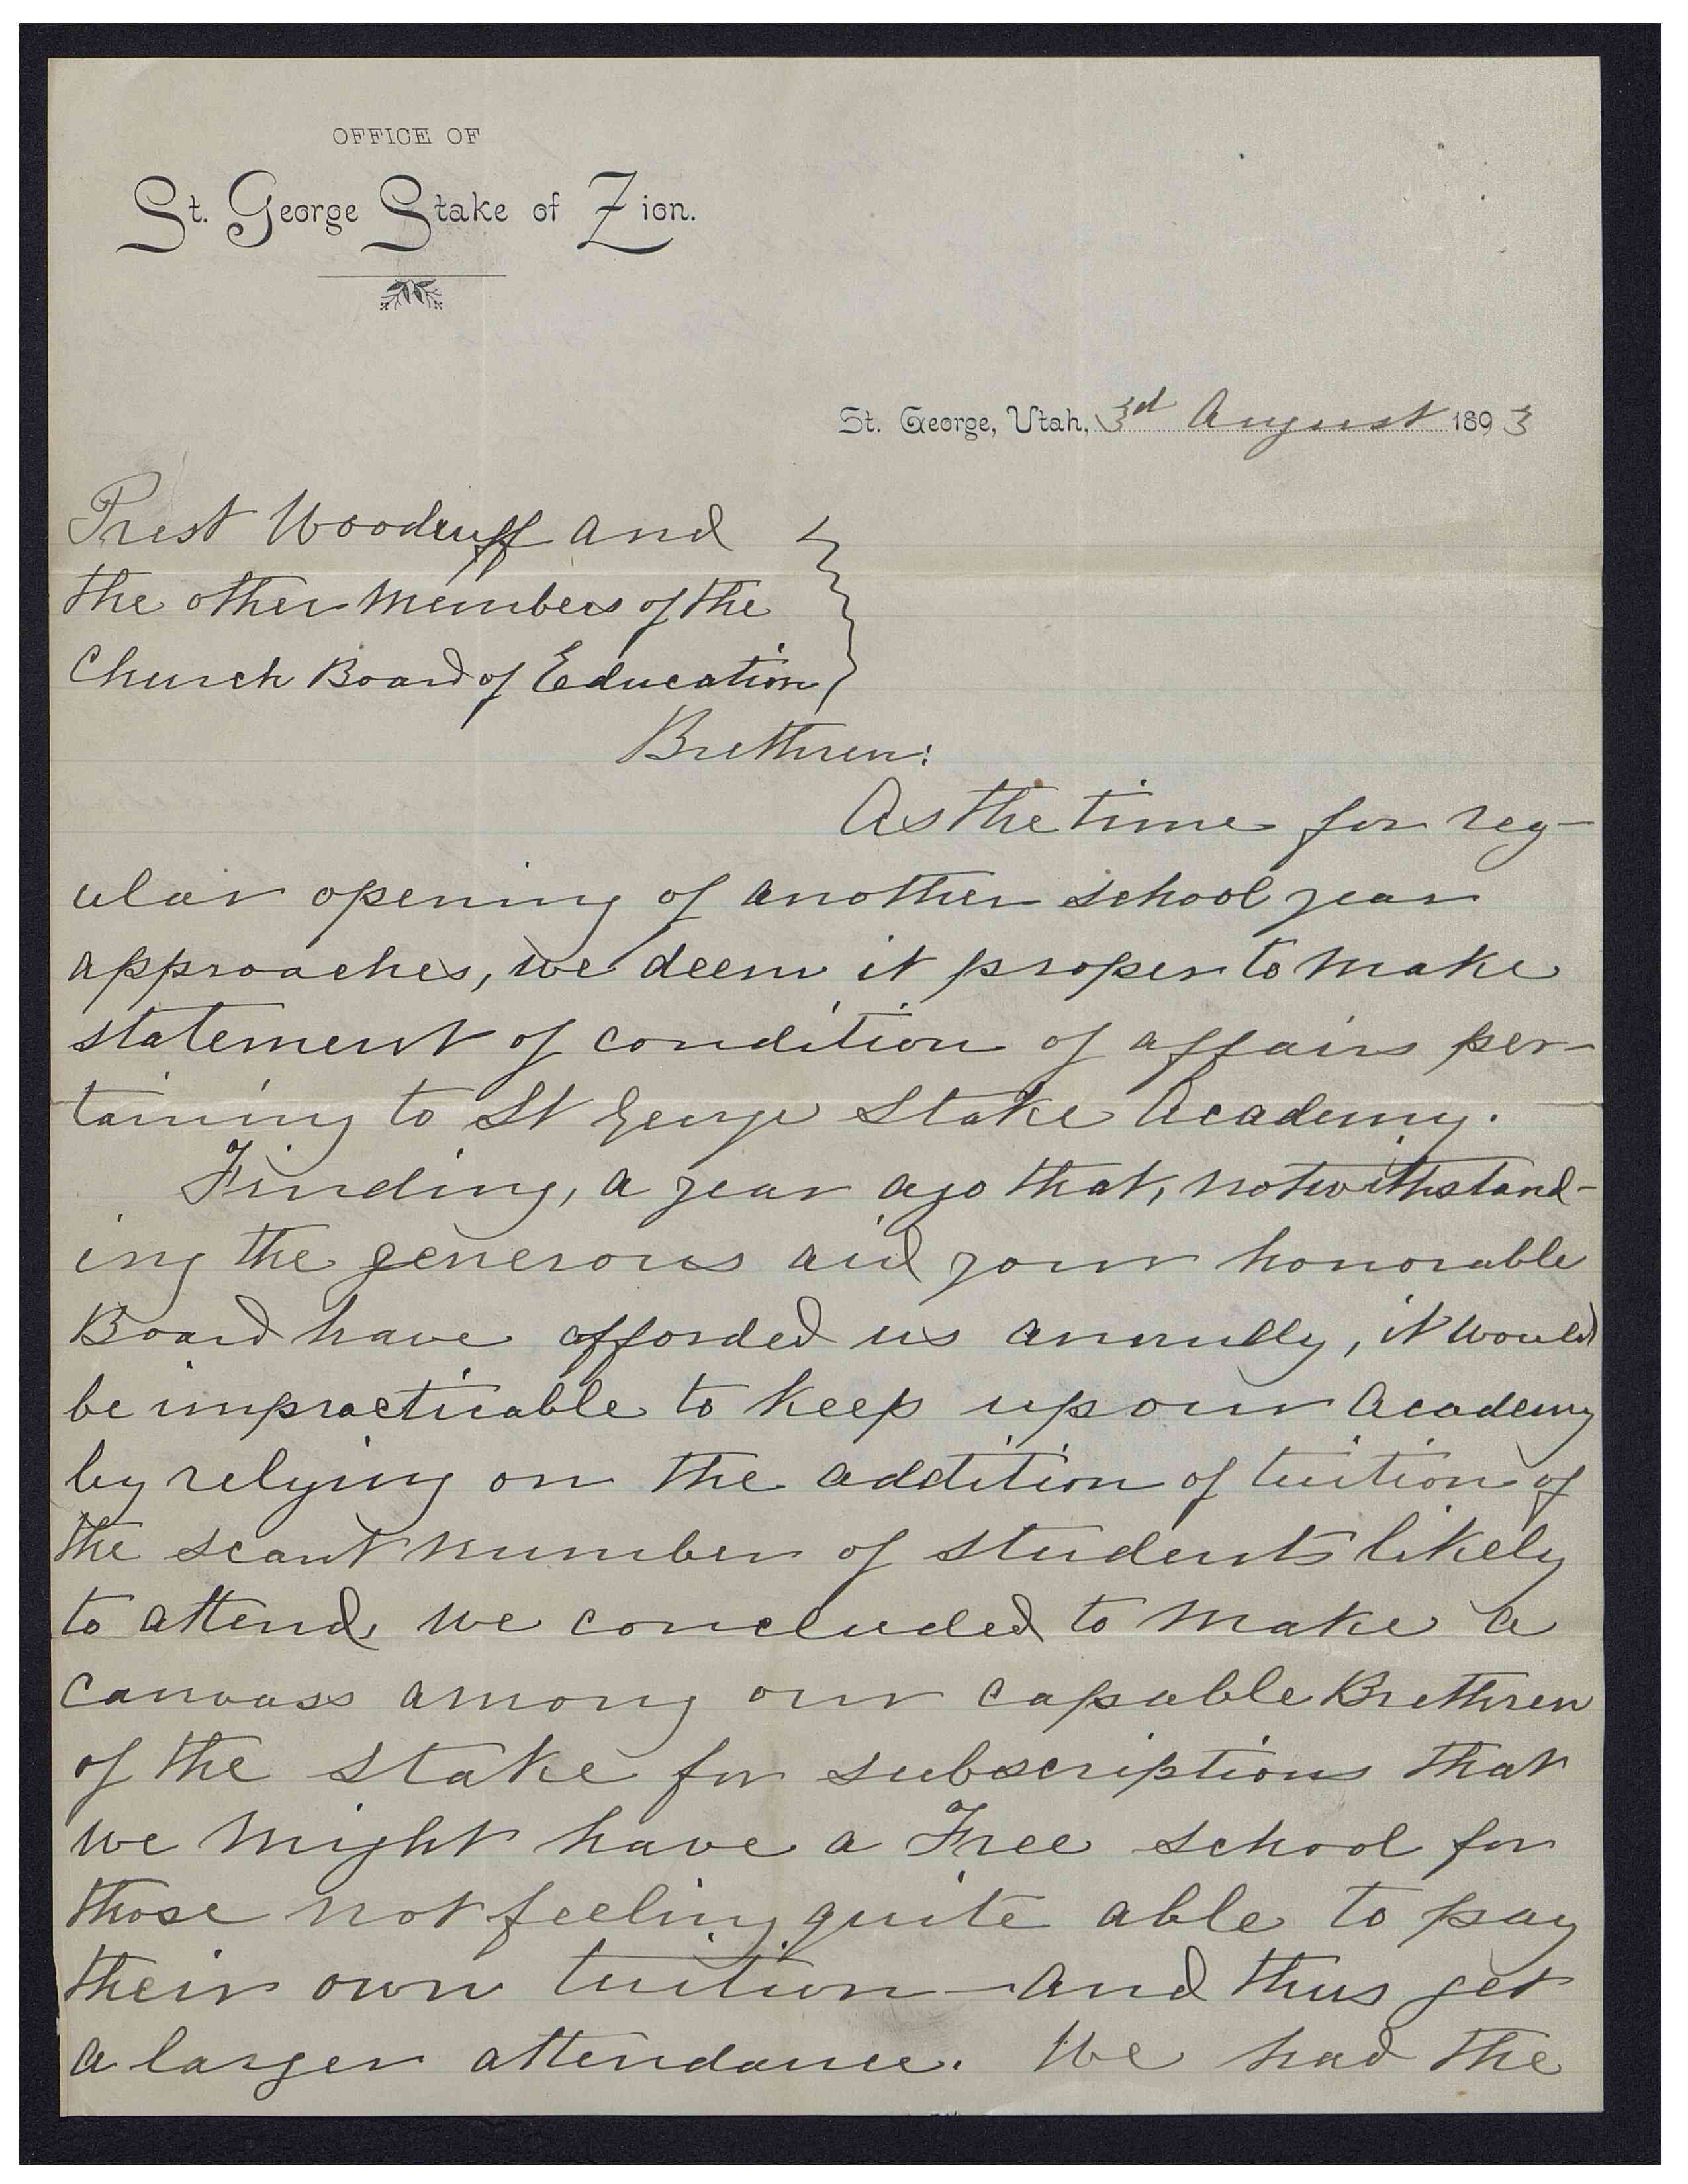 OFFICE OF
St. George Stake of Zion.
St. George, Utah, 3d August 1893
Prest Woodruff and
the other members of the
Church Board of Education
Brethren:
As the time for reg-
ular opening of another school year
approaches, we deem it proper to make
statement of condition of affairs per-
taining to St George Stake Academy.
Finding, a year ago that, notwithstand-
ing the generous aid your honorable
Board have afforded us annully, it would
be impracticable to keep up our Academy
by relying on the addition of tuition of
the scant number of students likely
to attend, we concluded to make a
canvass among our capable Brethren
of the stake for subscriptions that
we might have a Free school for
those not feeling quite able to pay
their own tuition—and thus get
a larger attendance. We had the